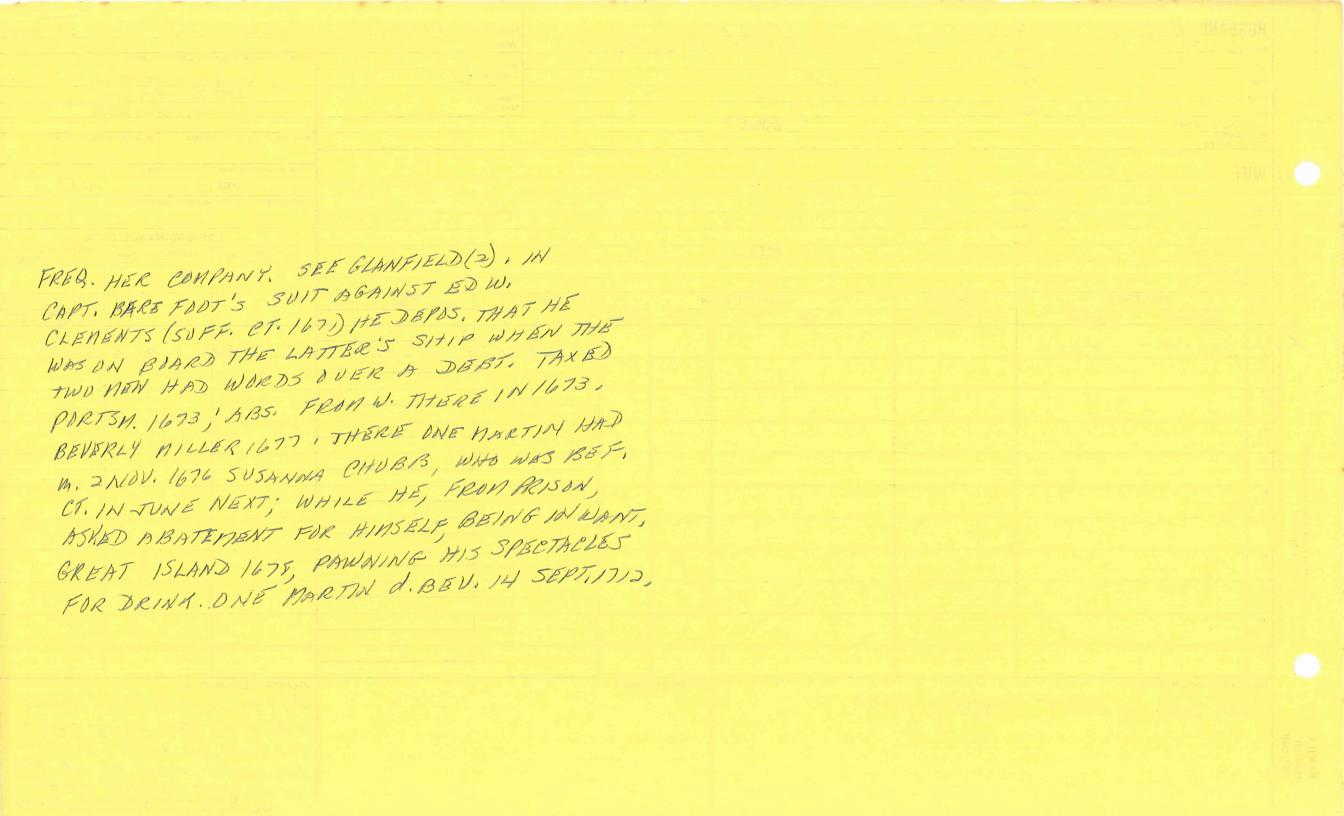 FREQ. HER COMPANY. SEE GLANFIELD (2). IN
CAPT. BAREFOOT'S SUIT AGAINST EDW.
CLEMENTS (SUFF. CT. 1671) HE DEPOS. THAT HE
WAS ON BOARD THE LATTER'S SHIP WHEN THE
TWO MEN HAD WORDS OVER A DEBT. TAXED
PORTSM. 1673; ABS. FROM W. THERE IN 1673.
BEVERLY MILLER 1677. THERE ONE MARTIN HAD
m. 2 NOV. 1676 SUSANNA CHUBB, WHO WAS BEF.
CT. IN JUNE NEXT; WHILE HE, FROM PRISON,
ASKED ABATEMENT FOR HIMSELF, BEING IN WANT,
GREAT ISLAND 1678, PAWNING HIS SPECTACLES
FOR DRINK. ONE MARTIN d. BEV. 14 SEPT. 1712.